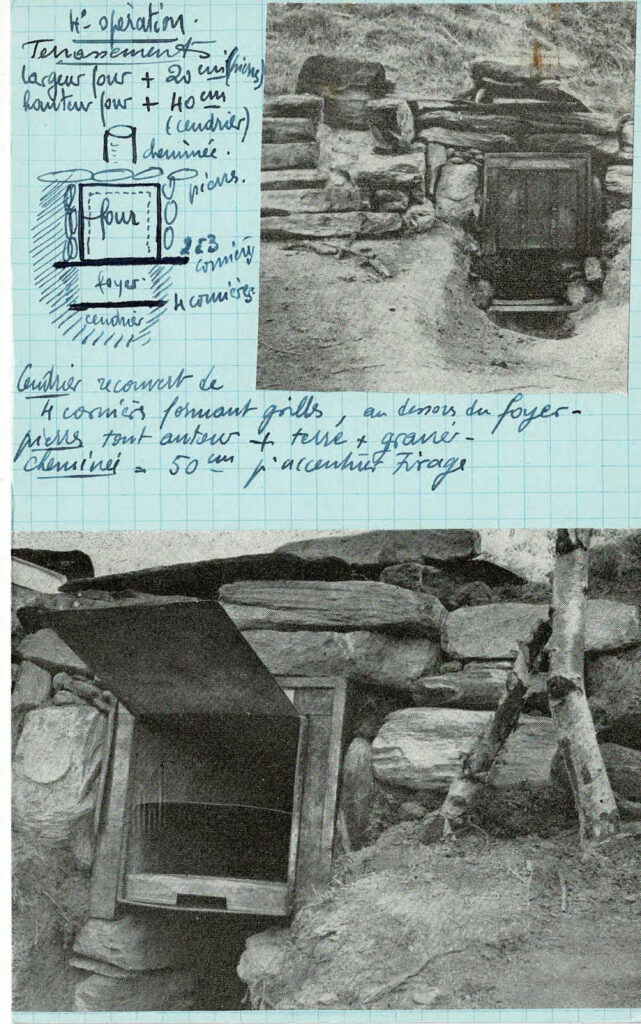 4e opération.
Terrassements
largeur four + 20 cm (pierres)
hauteur four + 40 cm
(cendrier)
cheminée.
pierres.
four
2 à 3
cornières
foyer
4 cornières.
cendrier
Cendrier recouvert de
4 cornières formant grilles, au dessous du foyer -
pierres tout autour + terre + gravier -
cheminée = 50 cm p. accentuer Tirage